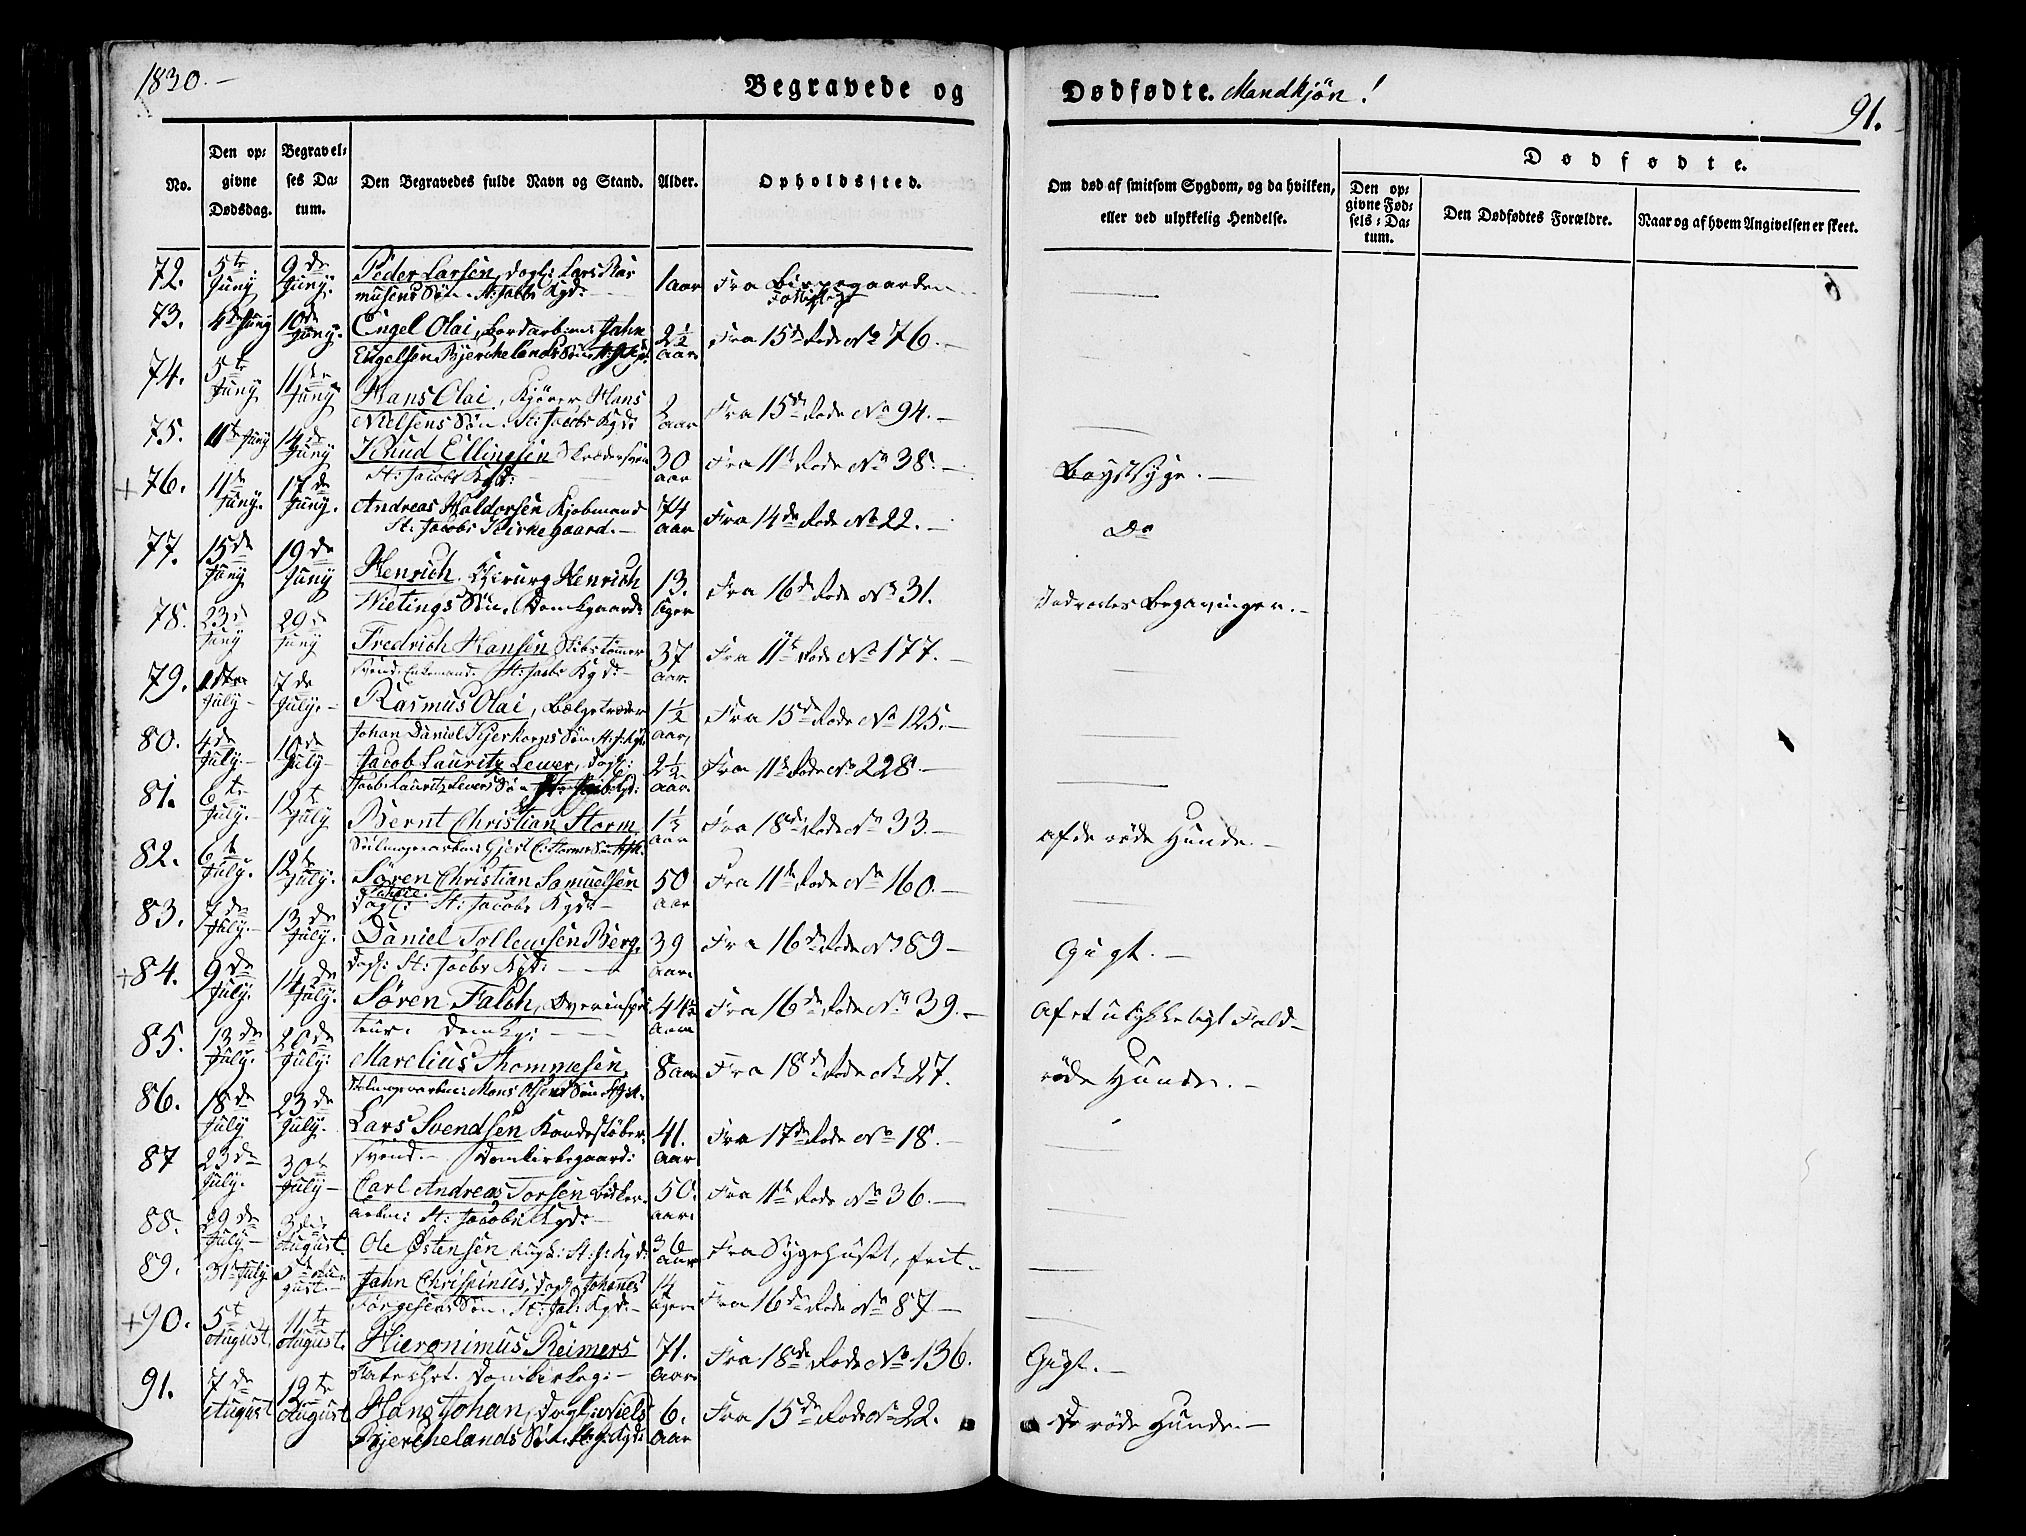 1830.-
Begravede og
Dødfødte. Mandkjøn!
91.
No.
Den op-
givne
Dødsdag.
Begravel-
ses Da-
tum.
Den Begravedes fulde Navn og Stand.
Alder.
Opholdssted.
Om død af smitsom Sygdom, og da hvilken,
eller ved ulykkelig Hendelse.
Dødfødte.
Den op-
givne Fød-
sels-Da-
tum.
Den Dødfødtes Forældre.
Naar og af hvem Angivelsen er skeet.
72. 5te Juny 9de Juny. Peder Larsen, Dagl: Lars Ras 1 aar Fra Bispegaarden
musens Søn. St: Jacobs Kgd:
73. 4de Juny 10de Juny. Engel Olai, Jahn 2½ aar Fra 15de Rode No 76.
Engelsen Bjerchelands Søn St. J. Kgd.
74. 5te Juny 11te Juny Hans Olai, Kjører Hans 2 aar Fra 15de Rode No 94.
Nielsens Søn. St: Jacobs Kgd:
75. 11te Juny 14de Juny Knud Ellingsen 30 aar Fra 11te Rode No 38. Brystsyge.
St: Jacobs Kgd:
+ 76. 11te Juny. 17de Juny. Andreas Haldorsen Kjøbmand 74 aar Fra 14de Rode No 22. Do
St: Jacobs Kirkegaard.
77. 15de Juny 19de Juny Henrich. Chirurg Henrich 13. Uger Fra 16de Rode No 31. Indvortes Begavninger.
Wietings Søn. Domkgaard:
78. 23de Juny 29de Juny Fredrich Hansen Skibstømmer 37 aar Fra 11te Rode No 177.
svend. Enkemand. St: Jacobs Kgd:
79. 1ste July 7de July. Rasmus Olai, Bælgetræder 1½ aar, Fra 15de Rode No 125.
Johan Daniel Søn. St. J. Kgd:
80. 4de July. 10de July Jacob Lauritz Lewer, Dagl: 2½ aar Fra 11te Rode No 228.
Jacob Lauritz Lewers Søn St: Jacobs Kgd:
81. 6te July. 12te July Bernt Christian Storm 1½ aar Fra 18de Rode No 33. af de røde Hunde.
Seilmagerarbm: Gjert C: Storms Søn
82. 6te July. 12te July. Søren Christian Samuelsen 50 aar Fra 11te Rode No 160.
Dagl: St: Jacobs Kgd:
83. 7de July. 13de July. Daniel Tollewsen Berg, 39 aar Fra 16de Rode No 89 Gigt.
Dagl: St: Jacobs Kgd:
+ 84. 9de July. 14de July. Søren Falch, 44 aar Fra 16de Rode No 39. Af et ulykkeligt Fald
teur. Domkg:
85. 13de July. 20de July: Marelius Thommesen, 8 aar Fra 18de Rode No 27. røde Hunde.
Seilmagerarbm: Mons Olsens Søn
86. 18de July 23de July. Lars Svendsen Kandestøber 41. aar Fra 17de Rode No 18.
svend. Domkirkegaard:
87 23de July. 30te July Carl Andreas Torsen Bødker 50. aar: Fra 11te Rode No 36.
arbm: St: Jacobs Kgd:
88. 29de July 3die August. Ole Østensen St: J: Kgd: 36 aar Fra Sygehuset, frit.
89. 31te July 5te Au- Jahn Chrispinus, Dagl: Johannes 14 Uger Fra 16de Rode No 87
gust. Jørgesens Søn. St: Jac: Kgd:
+ 90. 5te August. 11te August. Hieronimus Reimers 71. aar. Fra 18de Rode No 136. Gigt.
Domkirkeg:
91. 7de August 12te August Hans Johan, Dagl: Niels 6. aar Fra 15de Rode No 22. De røde Hunde.
Bjerchelands Søn. St. J: Kgd: